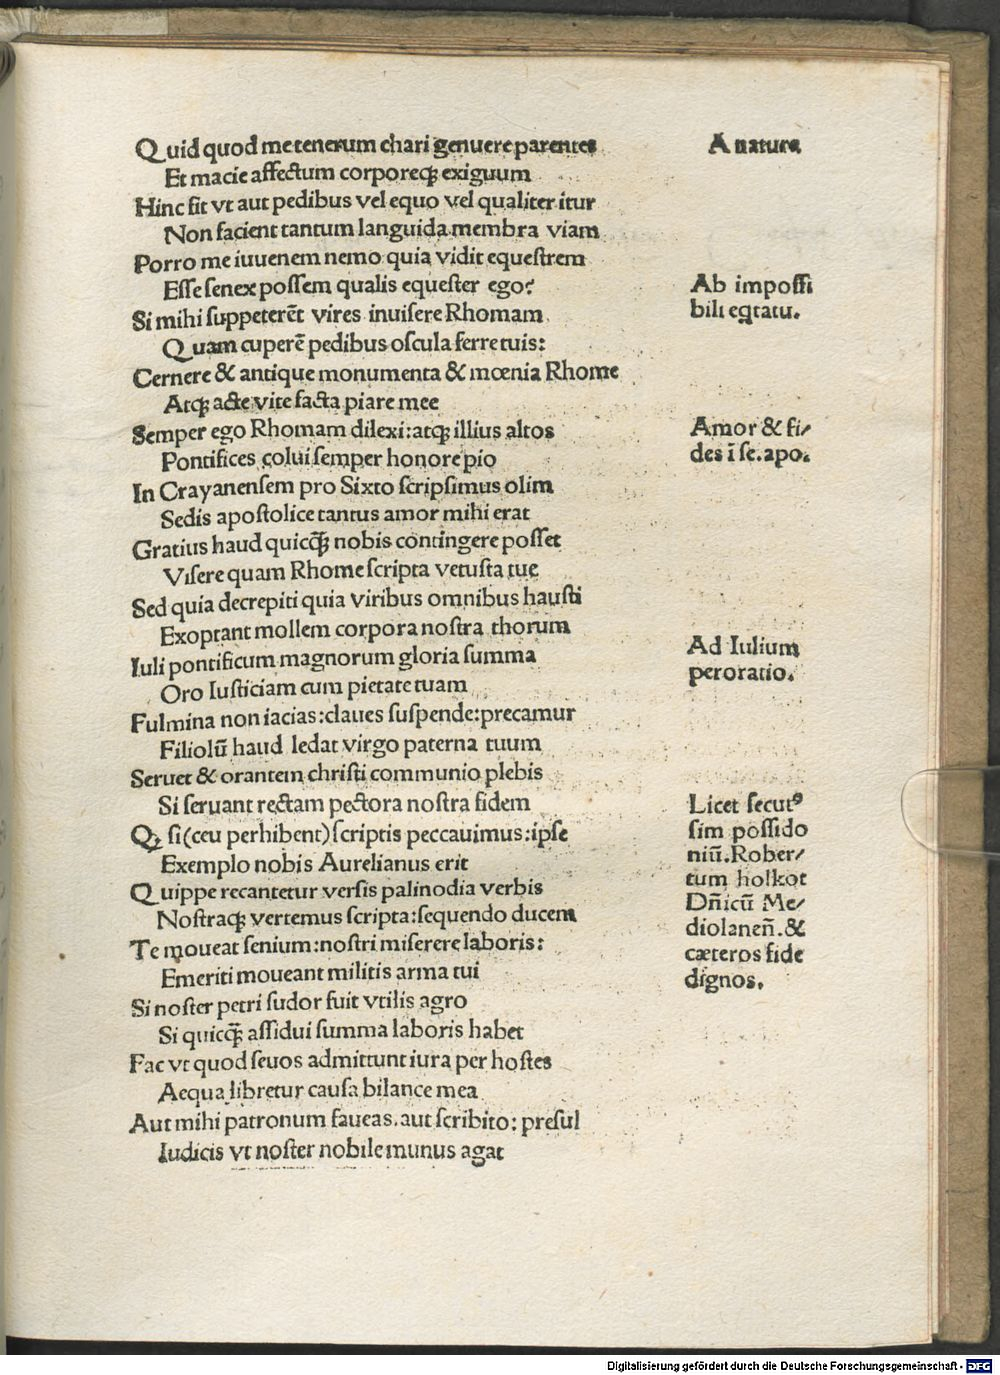 Quid quod me tenerum chari genuere parentes
Et macie affectum corporeqꝫ exiguum
Hinc fit vt aut pedibus vel equo vel qualiter itur
Non facient tantum languida membra viam
Porro me iuuenem nemo quia vidit equeſtrem
Eſſe ſenex poſſem qualis equeſter ego?
Si mihi ſuppeterēt vires inuiſere Rhomam
Quam cuperē pedibus oſcula ferre tuis:
Cernere & antique monumenta & mœnia Rhome
Atqꝫ acte vite facta piare mee
Semper ego Rhomam dilexi: atqꝫ illius altos
Pontifices colui ſemper honore pio
In Crayanenſem pro Sixto ſcripſimus olim
Sedis apoſtolice tantus amor mihi erat
Gratius haud quicꝗ̄ nobis contingere poſſet
Viſere quam Rhome ſcripta vetuſta tue
Sed quia decrepiti quia viribus omnibus hauſti
Exoptant mollem corpora noſtra thorum
Iuli pontificum magnorum gloria ſumma
Oro Iuſticiam cum pietate tuam
Fulmina non iacias: claues ſuſpende: precamur
Filiolū haud ledat virgo paterna tuum
Seruet & orantem chriſti communio plebis
Si ſeruant rectam pectora noſtra fidem
Qꝫ ſi (ceu perhibent) ſcriptis peccauimus: ipſe
Exemplo nobis Aurelianus erit
Quippe recantetur verſis palinodia verbis
Noſtraqꝫ vertemus ſcripta: ſequendo ducem
Te moueat ſenium: noſtri miſerere laboris:
Emeriti moueant militis arma tui
Si noſter petri ſudor fuit vtilis agro
Si quicꝗ̄ aſſidui ſumma laboris habet
Fac vt quod ſeuos admittunt iura per hoſtes
Aequa libretur cauſa bilance mea
Aut mihi patronum faueas. aut ſcribito: preſul
Iudicis vt noſter nobile munus agat
A natura
Ab impoſſi
bili eqtatu.
Amor & fi⸗
des ī ſe. apo.
Ad Iulium
peroratio.
Licet ſecutꝰ
ſim poſſido
niū. Rober⸗
tum holkot
Dn̄icū Me⸗
diolanen̄. &
cæteros fide
dignos.
Digitalisierung gefördert durch die Deutsche Forschungsgemeinschaft - DFG